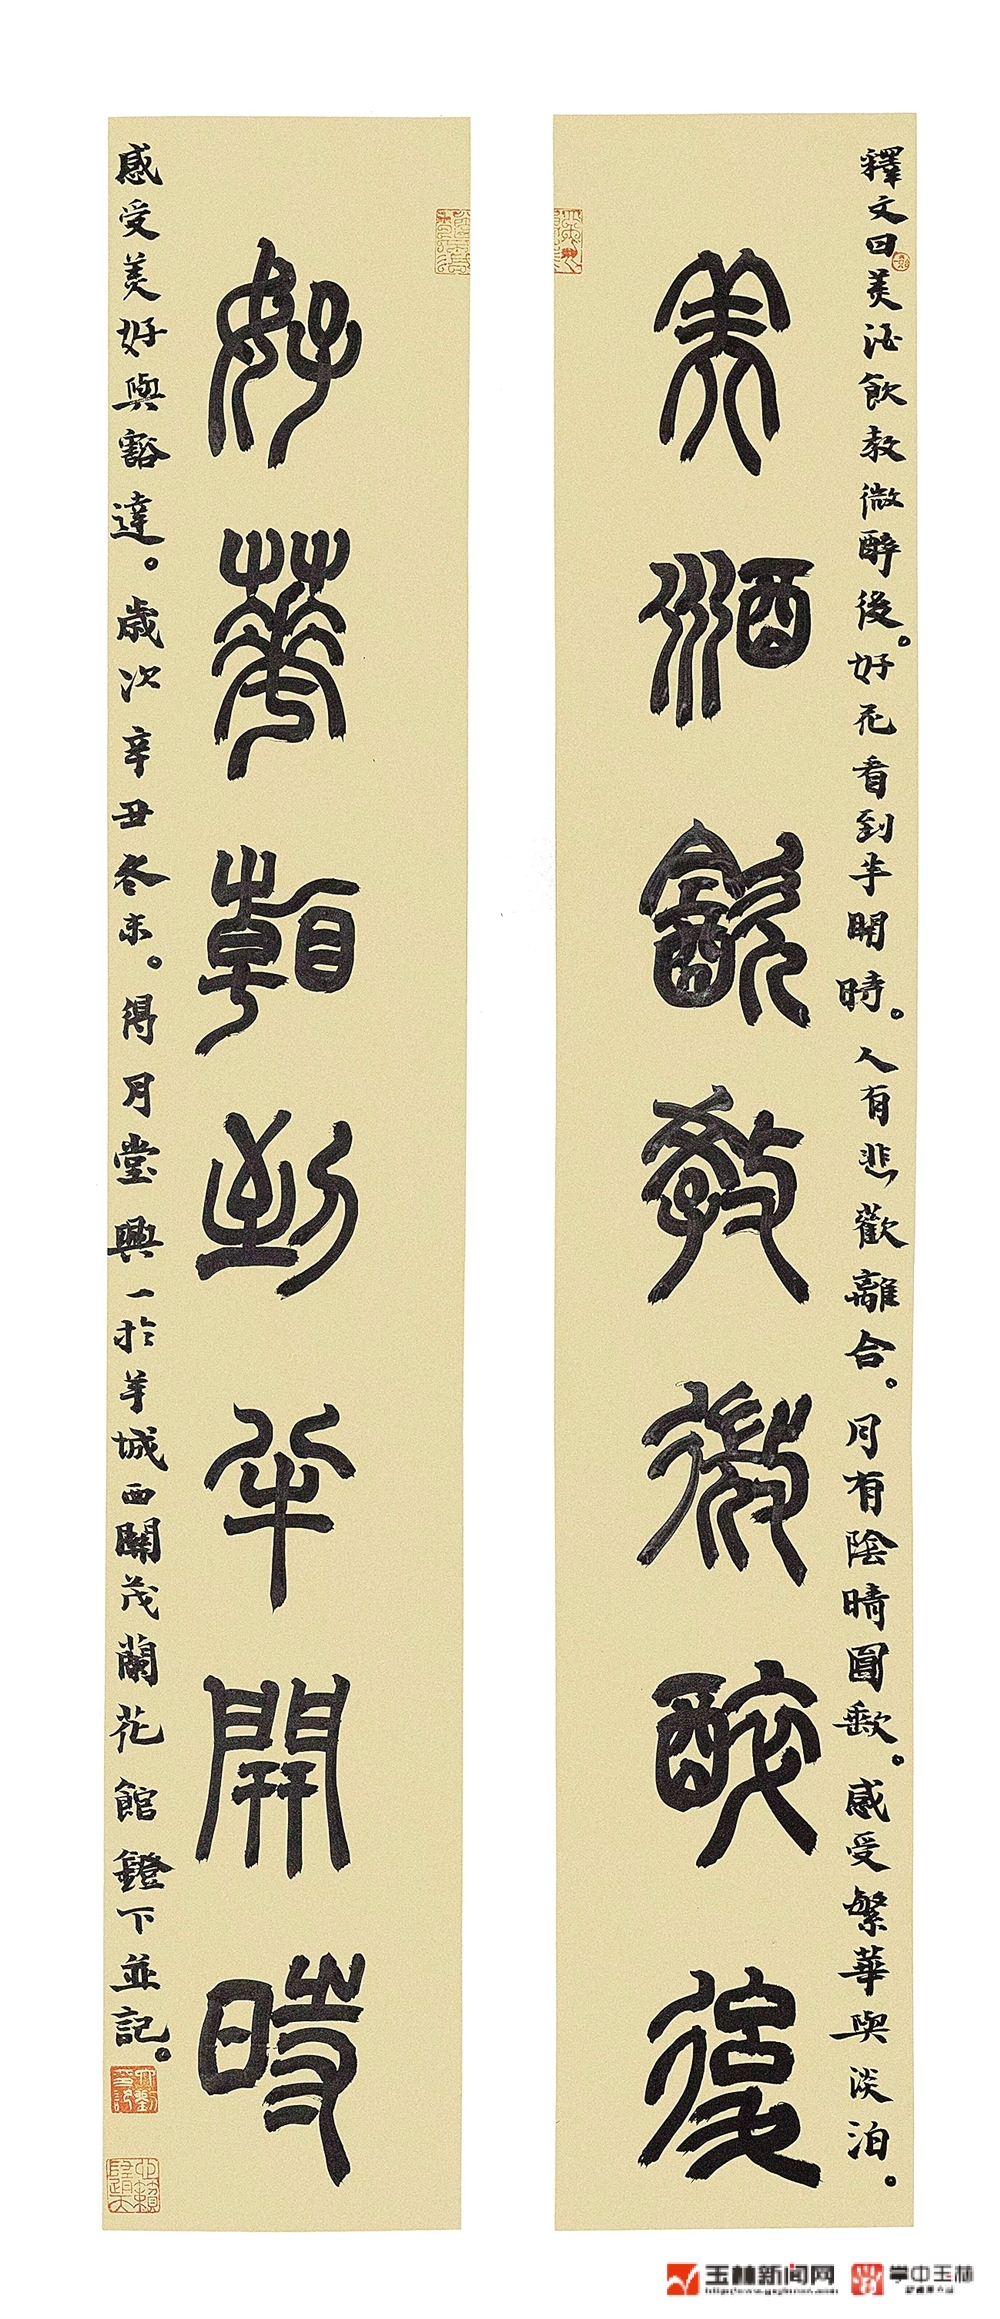 美酒飲教微醉後
釋文曰美酒飲教微醉後。好花看到半開時。人有悲歡離合。月有陰晴圓缺。感受繁華與淡泊。
好華看到半開時
感受美好與豁達。歲次辛丑冬末。得月堂興一於羊城西關茂蘭花館鐙下並記。
玉林新闻网
掌中玉林